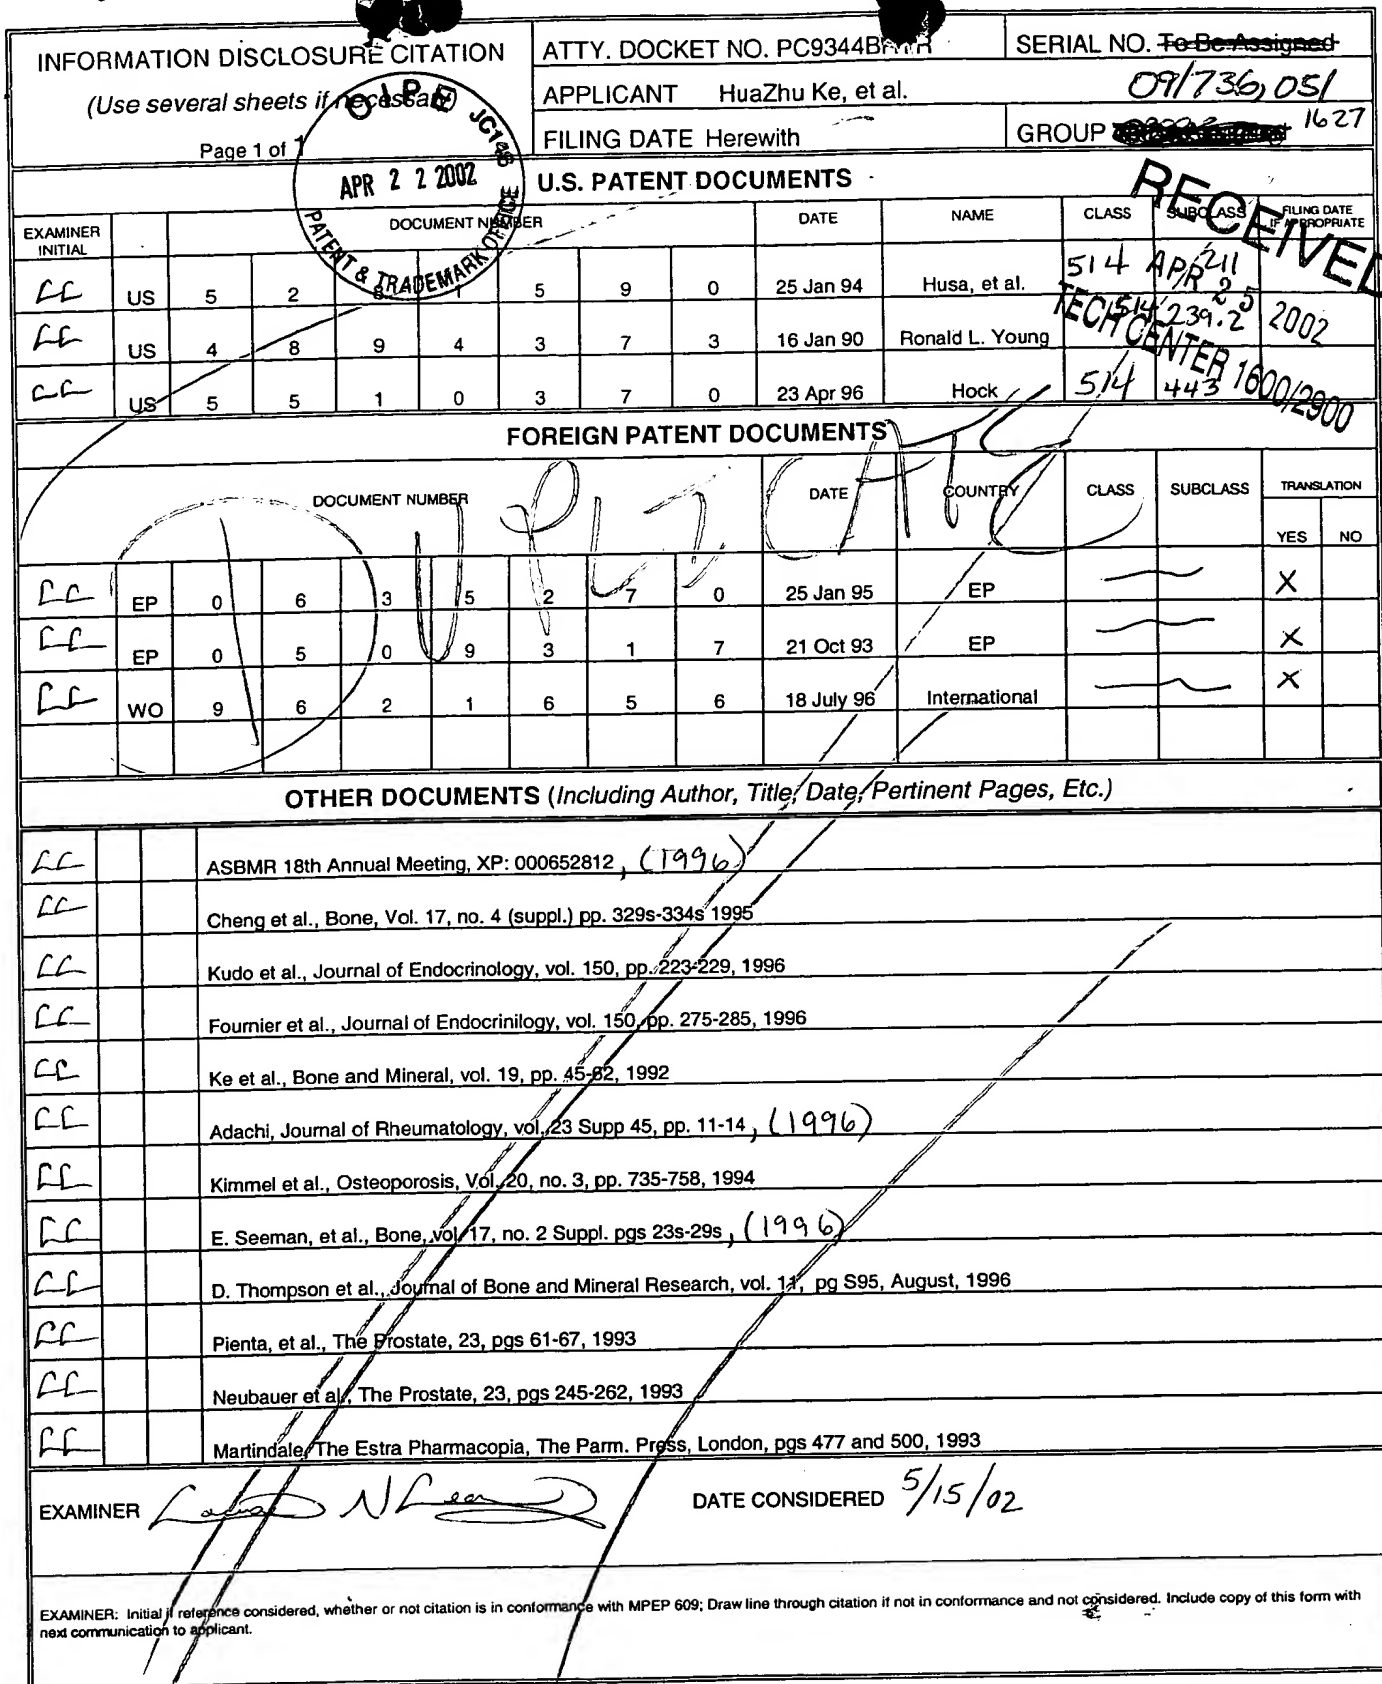 INFORMATION DISCLOSURE CITATION
(Use several sheets if necessary)
Page 1 of 1
ATTY. DOCKET NO. PC9344B
SERIAL NO. To Be Assigned
09/736,051
APPLICANT HuaZhu Ke, et al.
FILING DATE Herewith
GROUP 1627
OIPE JC148
APR 22 2002
PATENT & TRADEMARK OFFICE
RECEIVED
APR 25 2002
TECH CENTER 1600/2900
U.S. PATENT DOCUMENTS
EXAMINER INITIAL DOCUMENT NUMBER DATE NAME CLASS SUBCLASS FILING DATE IF APPROPRIATE
LC US 5 2 8 1 5 9 0 25 Jan 94 Husa, et al. 514 211
LC US 4 8 9 4 3 7 3 16 Jan 90 Ronald L. Young 514 239.2
LC US 5 5 1 0 3 7 0 23 Apr 96 Hock 514 443
FOREIGN PATENT DOCUMENTS
DUPLICATE
DOCUMENT NUMBER DATE COUNTRY CLASS SUBCLASS TRANSLATION
YES NO
LC EP 0 6 3 5 2 7 0 25 Jan 95 EP X
LC EP 0 5 0 9 3 1 7 21 Oct 93 EP X
LC WO 9 6 2 1 6 5 6 18 July 96 International X
OTHER DOCUMENTS (Including Author, Title, Date, Pertinent Pages, Etc.)
LC ASBMR 18th Annual Meeting, XP: 000652812, (1996)
LC Cheng et al., Bone, Vol. 17, no. 4 (suppl.) pp. 329s-334s 1995
LC Kudo et al., Journal of Endocrinology, vol. 150, pp. 223-229, 1996
LC Fournier et al., Journal of Endocrinilogy, vol. 150, pp. 275-285, 1996
LC Ke et al., Bone and Mineral, vol. 19, pp. 45-62, 1992
LC Adachi, Journal of Rheumatology, vol. 23 Supp 45, pp. 11-14, (1996)
LC Kimmel et al., Osteoporosis, Vol. 20, no. 3, pp. 735-758, 1994
LC E. Seeman, et al., Bone, vol. 17, no. 2 Suppl. pgs 23s-29s, (1996)
LC D. Thompson et al., Journal of Bone and Mineral Research, vol. 11, pg S95, August, 1996
LC Pienta, et al., The Prostate, 23, pgs 61-67, 1993
LC Neubauer et al., The Prostate, 23, pgs 245-262, 1993
LC Martindale, The Estra Pharmacopia, The Parm. Press, London, pgs 477 and 500, 1993
EXAMINER
DATE CONSIDERED 5/15/02
EXAMINER: Initial if reference considered, whether or not citation is in conformance with MPEP 609; Draw line through citation if not in conformance and not considered. Include copy of this form with
next communication to applicant.